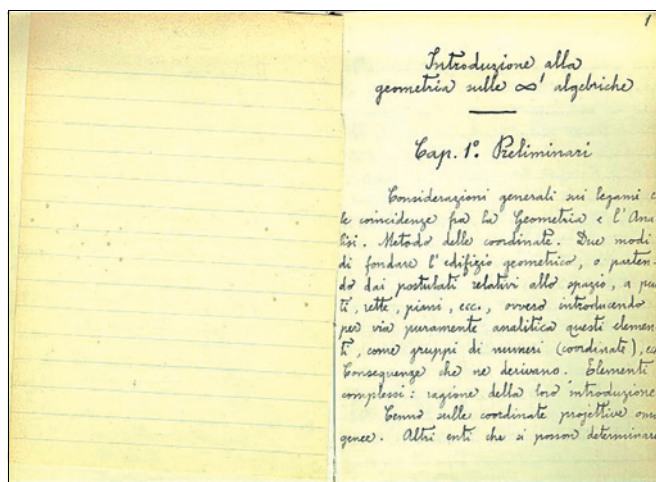 1
Introduzione alla
geometria sulle ∞¹ algebriche
Cap. 1º. Preliminari
Considerazioni generali sui legami e
le coincidenze fra la Geometria e l'Ana
lisi. Metodo delle coordinate. Due modi
di fondare l'edifizio geometrico, o parten-
do dai postulati relativi allo spazio, a pun
ti, rette, piani, ecc., ovvero introducendo
per via puramente analitica questi elemen
ti, come gruppi di numeri (coordinate), ec
Conseguenze che ne derivano. Elementi
complessi: ragione della loro introduzione
Cenno sulle coordinate projettive omo
genee. Altri enti che si posson determinare